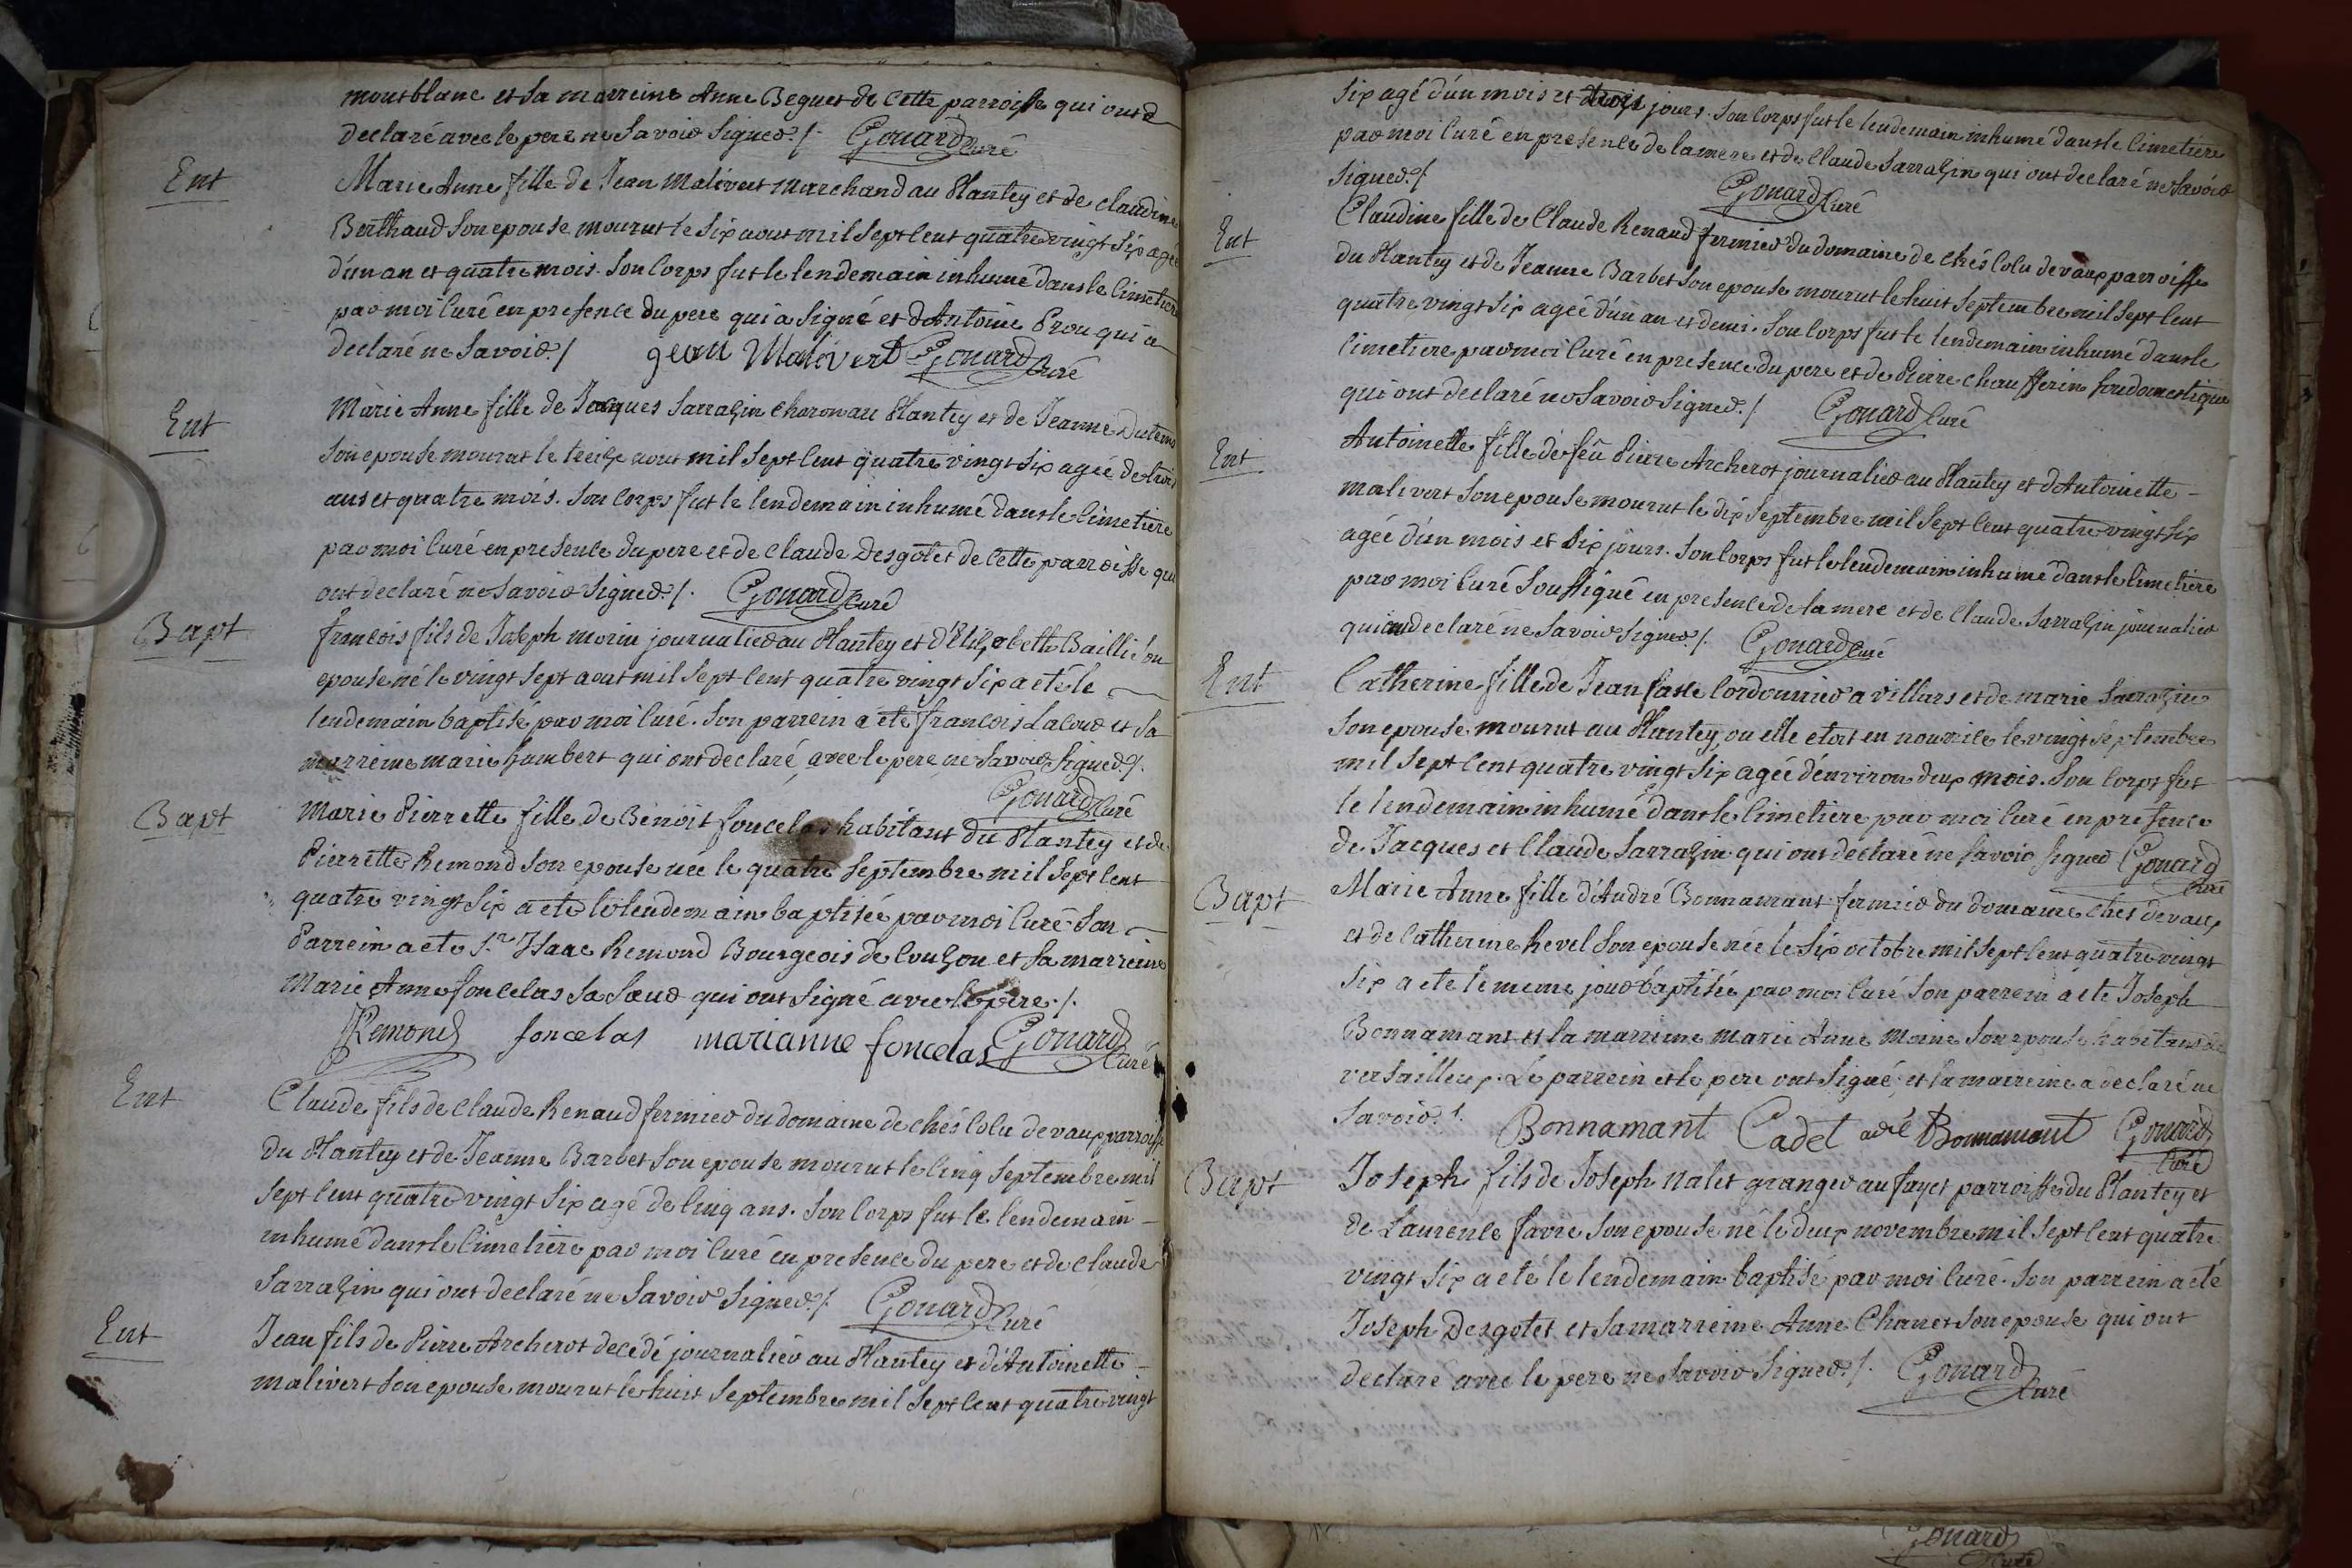 montblanc et sa marreine Anne Beguet de cette parroisse qui ont
declaré avec le pere ne savoir signer ./. Gouard curé
Ent
Marie Anne fille de Jean Malivert marchand au Plantey et de claudine
Berthaud son epouse mourut le six aout mil sept cent quatre vingt six agée
d'un an et quatre mois. Son corps fut le lendemain inhumé dans le cimetiere
par moi curé en presence du pere qui a signé et d'Antoine Prou qui a
declaré ne savoir ./ jean Malivert Gouard curé
Ent
Marie Anne fille de Jacques Sarrazin charon au Plantey et de Jeanne Dutems
son epouse mourut le treize aout mil sept cent quatre vingt six agée de trois
ans et quatre mois. Son corps fut le lendemain inhumé dans le cimetiere
par moi curé en presence du pere et de claude Desgotet de cette parroisse qui
ont declaré ne savoir signer ./. Gouard curé
Bapt
francois fils de Joseph morin journalier au Plantey et d'Elizabeth Bailli son
epouse né le vingt sept aout mil sept cent quatre vingt six a eté le
lendemain baptisé par moi curé. Son parrein a eté francois Lacour et sa
marreine marie humbert qui ont declaré avec le pere ne savoir signer ./.
Gouard curé
Bapt
Marie Pierrette fille de Benoit foncelas habitant du Plantey et de
Pierrette Remond son epouse née le quatre septembre mil sept cent
quatre vingt six a eté le lendemain baptisée par moi curé son
Parrein a eté Sr. Isaac Remond Bourgeois de Couzon et sa marreine
Marie Anne foncelas sa soeur qui ont signé avec le pere ./.
Remond foncelas marianne foncelas Gouard curé
Ent
Claude fils de claude Renaud fermier du domaine de chés Colu de vaux parroisse
du Plantey et de Jeanne Barbet son epouse mourut le cinq septembre mil
sept cent quatre vingt six agé de cinq ans. Son corps fut le lendemain
inhumé dans le cimetiere par moi curé en presence du pere et de claude
Sarrazin qui ont declaré ne savoir signer ./. Gouard curé
Ent
Jean fils de Pierre Archerot decédé journalier au Plantey et d'Antoinette
malivert son epouse mourut le huit septembre mil sept cent quatre vingt
six agé d'un mois et jours. Son corps fut le lendemain inhumé dans le cimetiere
par moi curé en presence de la mere et de claude Sarrazin qui ont declaré ne savoir
signer ./ Gouard curé
Ent
Claudine fille de Claude Renaud fermier du domaine de chés Colu de vaux parroisse
du Plantey et de Jeanne Barbet son epouse mourut le huit septembre mil sept cent
quatre vingt six agée d'un an et demi. Son corps fut le lendemain inhumé dans le
cimetiere par moi curé en presence du pere et de Pierre chaufferin son domestique
qui ont declaré ne savoir signer ./ Gouard curé
Ent
Antoinette fille de feû Pierre Archerot journalier au Plantey et d'Antoinette
malivert son epouse mourut le dix septembre mil sept cent quatre vingt six
agée d'un mois et six jours. Son corps fut le lendemain inhumé dans le cimetiere
par moi curé soussigné en presence de la mere et de claude Sarrazin journalier
qui ont declaré ne savoir signer ./. Gouard curé
Ent
Catherine fille de Jean faste cordonnier a villars et de marie Sarrazin
son epouse mourut au Plantey, ou elle etoit en nourrice le vingt septembre
mil sept cent quatre vingt six agée d'environ deux mois. Son corps fut
le lendemain inhumé dans le cimetiere par moi curé en presence
de Jacques et Claude Sarrazin qui ont declaré ne savoir signer Gouard curé
Bapt
Marie Anne fille d'André Bonnamant fermier du domaine chés devaux
et de Catherine Revel son epouse née le six octobre mil sept cent quatre vingt
six a eté le meme jour baptisée par moi curé. Son parrein a eté Joseph
Bonnamant et la marreine marie Anne moine son epouse habitans de
versailleux. Le parrein et le pere ont signé, et la marreine a declaré ne
savoir ./. Bonnamant Cadet adré Bonnamant Gouard curé
Bapt
Joseph fils de Joseph Nalet granger au fayet parroisse du Plantey et
de Laurence favre son epouse né le deux novembre mil sept cent quatre
vingt six a eté le lendemain baptisé par moi curé. Son parrein a eté
Joseph Desgotet et sa marreine Anne Chanet son epouse qui ont
declaré avec le pere ne savoir signer ./. Gouard curé
Gouard curé